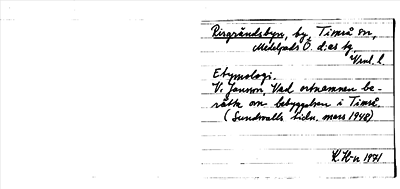 Risgrändsbyn, by, Timrå sn,
Medelpads Ö. d:as tg,
Vnl. l.
Etymologi.
V. Jansson, Vad ortnamnen be-
rätta om bebyggelsen i Timrå.
(Sundsvalls tidn. mars 1948)
K. H-n 1971